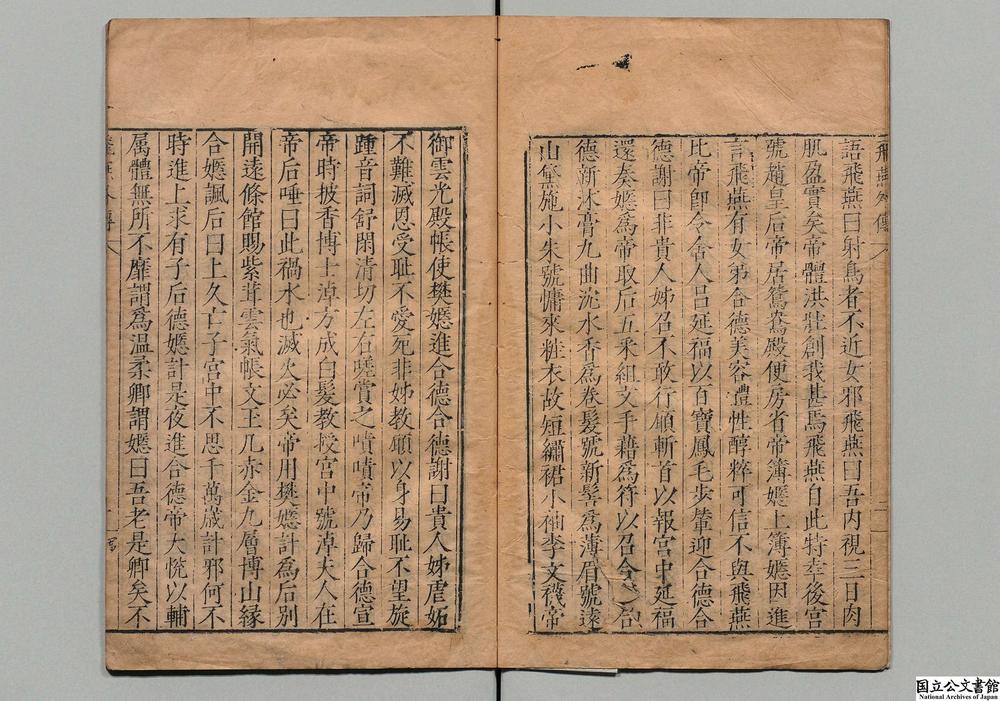 飛燕外傳
語飛燕曰射鳥者不近女邪飛燕曰吾内視三日肉
肌盈實矣帝體洪壯創我甚焉飛燕自此特幸後宮
號趙皇后帝居鴛鴦殿便房省帝簿嫕上簿嫕因進
言飛燕有女弟合德美容體性醇粹可信不與飛燕
比帝即令舍人呂延福以百寶鳳毛步輦迎合德合
德謝曰非貴人姊召不敢行願斬首以報宮中延福
還奏嫕爲帝取后五采組文手藉爲符以召合德合
德新沐膏九曲沈水香爲卷髮號新髻爲薄眉號遠
山黛施小朱號慵來粧衣故短繡裙小袖李文襪帝
御雲光殿帳使樊嫕進合德合德謝曰貴人姊虐妬
不難滅恩受耻不愛死非姊教願以身易耻不望旋
踵音詞舒閑清切左右嗟賞之嘖嘖帝乃歸合德宣
帝時披香博士淖方成白髮教授宮中號淖夫人在
帝后唾曰此禍水也滅火必矣帝用樊嫕計為后別
開遠條館賜紫茸雲氣帳文玉几赤金九層博山緣
合嫕諷后曰上久亡子宮中不思千萬歳計邪何不
時進上求有子后德嫕計是夜進合德帝大恱以輔
属體無所不靡謂爲溫柔卿謂嫕曰吾老是卿矣不
国立公文書館
National Archives of Japan